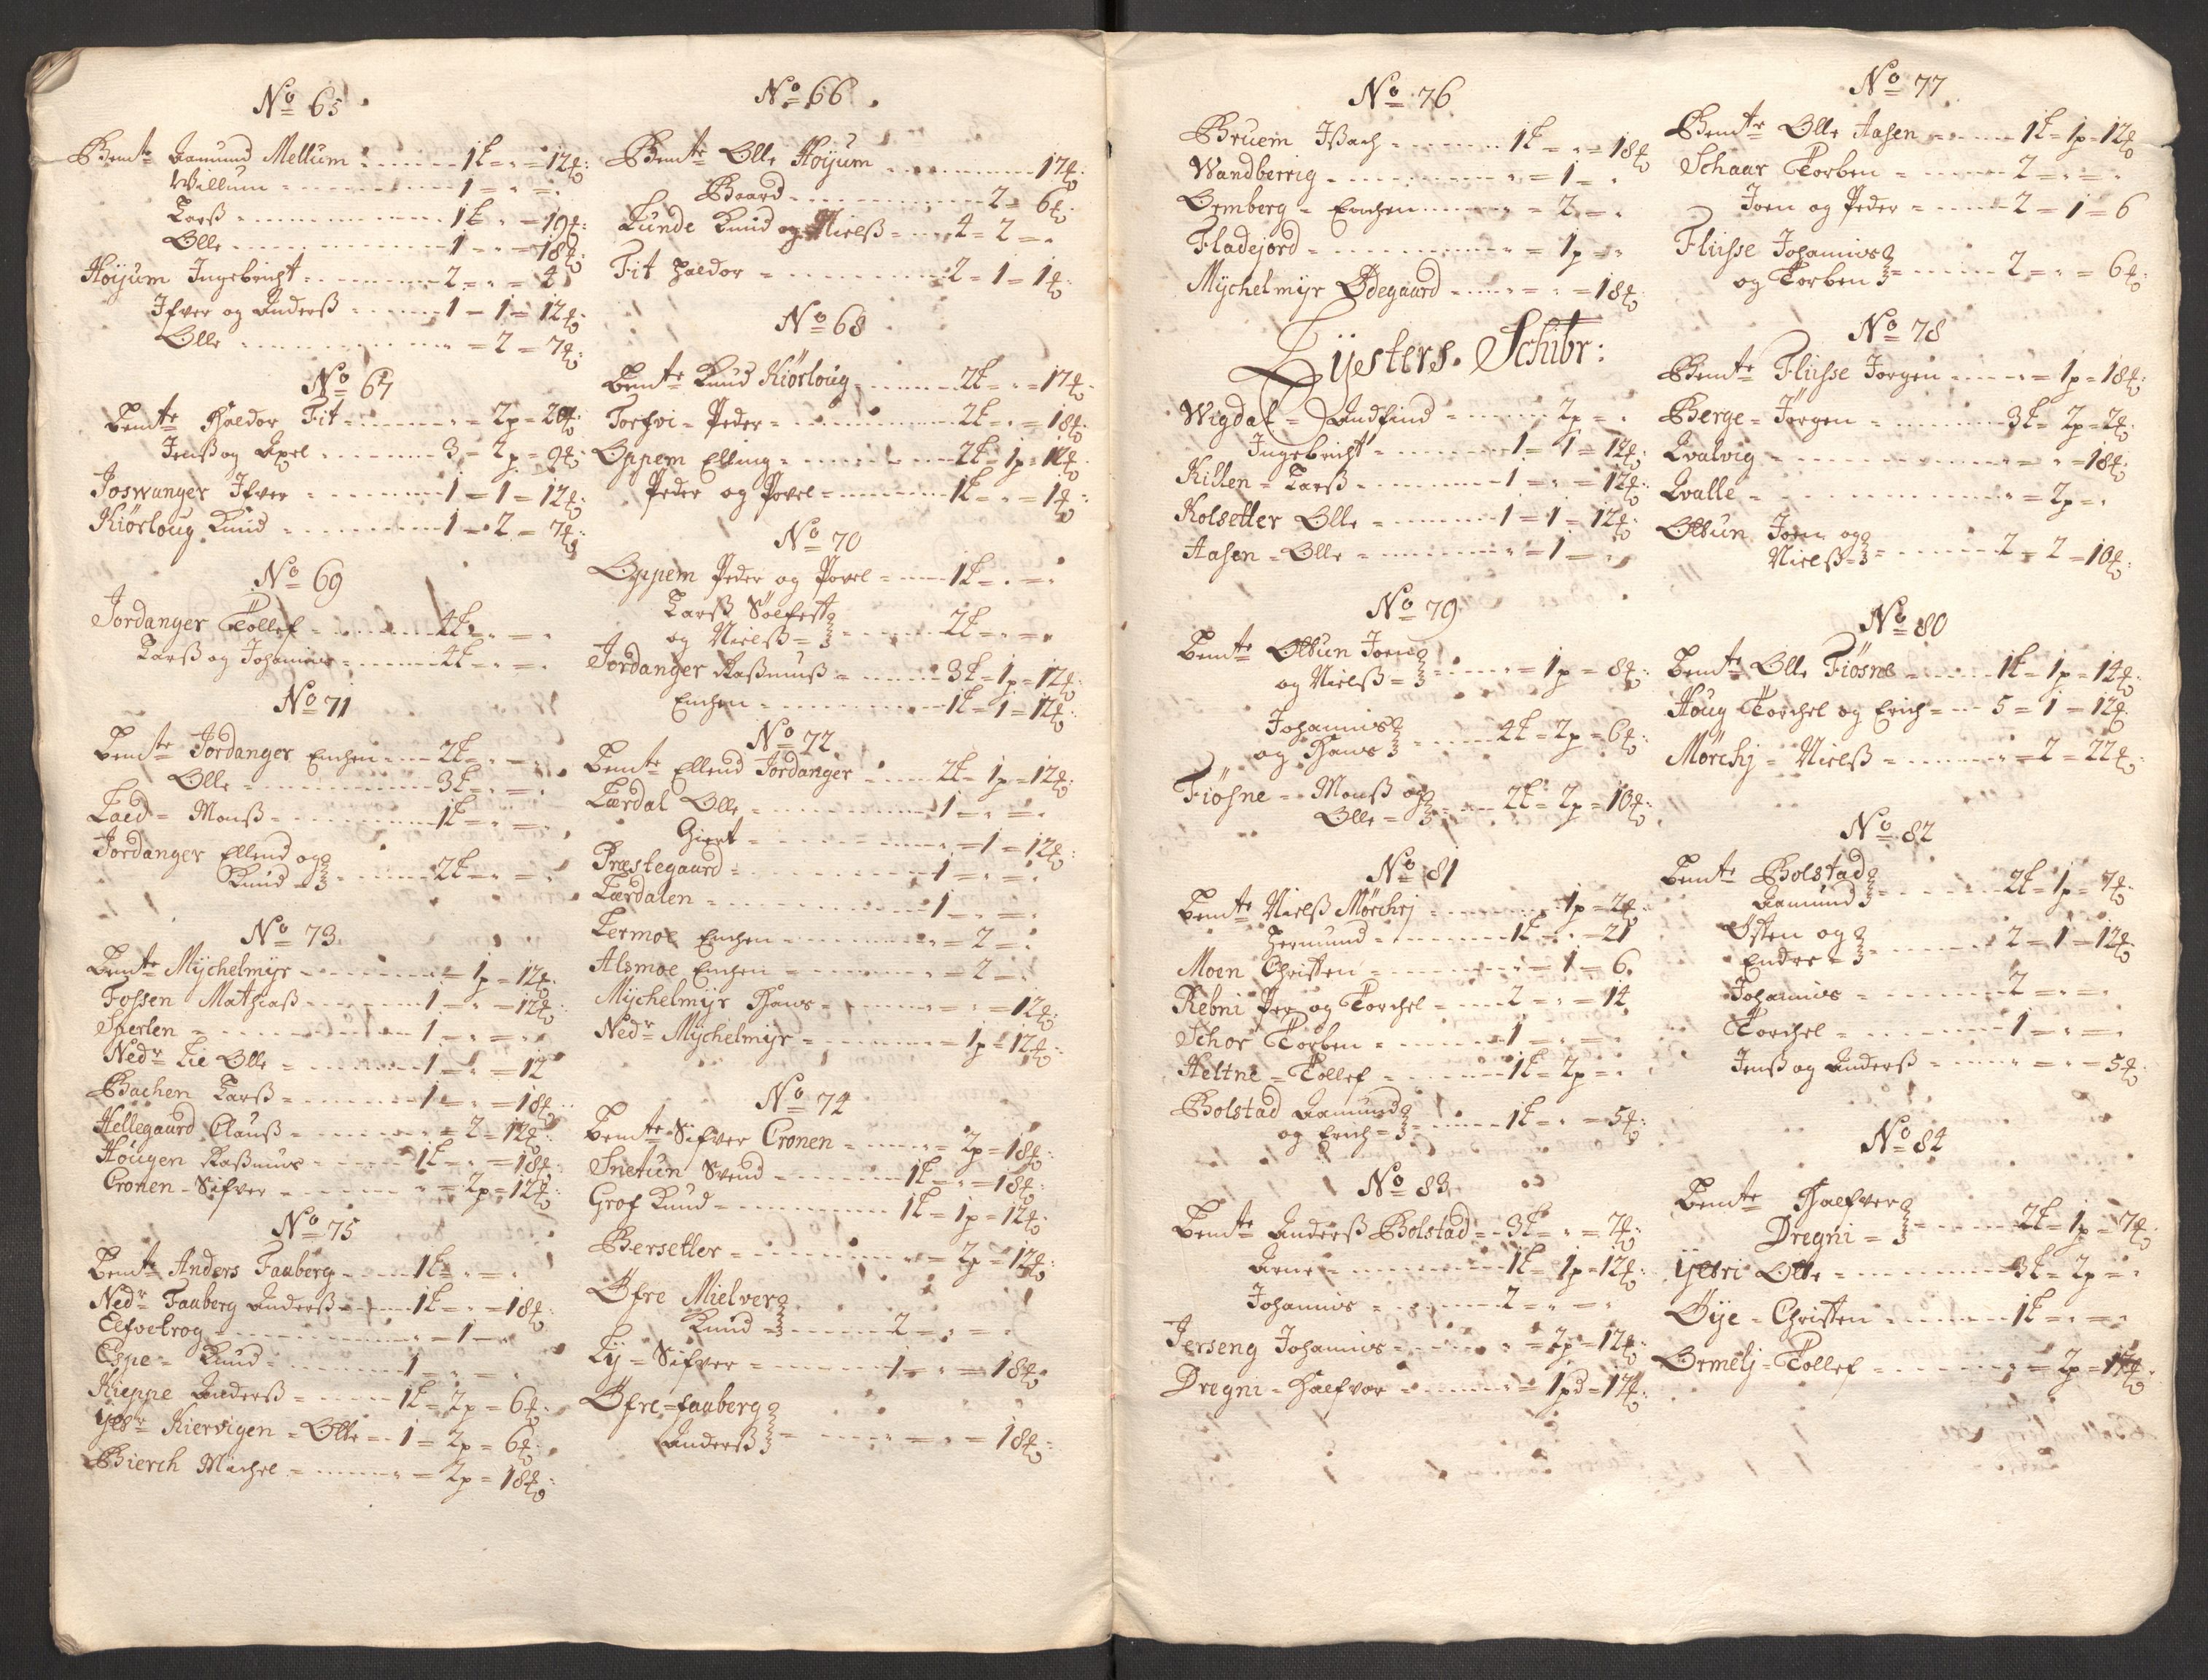 No 65
Bemte Aamund Mellum 1t = = 12
Willum 1 = =
Larß 1t = = 19
Olle 1 = = 18
Høyum Ingebricht 2 = = 4
Ifver og Anderß 1 = 1 = 12
Olle = 2 = 7
No 67
Bemte Haldor Fit = 2p = 20
Jenß og Axel 3 = 2p = 9
Joswanger Ifver 1 = 1 = 12
Kiørloug Knud 1 = 2 = 7
No 69
Jordanger Tollef 4t = =
Larß og Johannis 4t = =
No 71
Bemte Jordanger Enchen 2t = =
Olle 3t = =
Laed = Monß 1t = =
Jordanger Ellend og
Knud = 2t = =
No 73
Bemte Mÿchelmÿr = 1p = 12
Fossen Mathiaß 1 = = 12
Sperlen 1 = =
Nedr Lie Olle 1 = = 12
Bachen Larß 1 = = 18
Hellegaard Clauß = 2 = 12
Hougen Raßmus 1t = = 18
Cronen = Sifver = 2p = 12
No 75
Bemte Anders Faaberg 1t = =
Nedr Faaberg Anderß 1t = = 18
Elfvekrog = 1 =
Espe = Knud 1 = =
Kieppe Anderß 1t = 2p = 6
Yttr Kiervigen = Olle 1 = 2p = 6
Bierch Michel = 2p = 18
No 66
Bemte Olle Høÿum 17
Baard 2 = 6
Lunde Knud og Nielß 4 = 2 =
Fit Haldor 2 = 1 = 1
No 68
Bemte Knud Kiørloug 2t = = 17
Torfvi = Peder 2t = = 18
Oppem Elling 2t = 1p = 12
Peder og Povel 1t = = 1
No 70
Oppem Peder og Povel 1t = =
Larß Sølfest
og Nielß = 2t = =
Jordanger Raßmuß 3t = 1p = 12
Enchen 1t = 1 = 12
No 72
Bemte Ellend Jordanger 2t = 1p = 12
Lærdal Olle 1 = =
Giert = 1 = 12
Præstegaard 1 = =
Lærdalen 1 = =
Lermoe Enchen = 2 =
Alsmoe Enchen = 2 =
Mÿchelmÿr Hans = = 12
Nedr Mÿchelmÿr = 1p = 12
No 74
Bemte Sifver Cronen = 2p = 18
Snetun Svend 1t = = 18
Grof Knud 1t = 1p = 12
Bersetter = 2p = 12
Øfre Mielver
Knud = 2 = =
Lÿ = Sifver 1 = = 18
Øfre = faaberg
Anderß = = 18
No 76
Bruem Ißach 1t = = 18
Wandberrig = 1 =
Ormberg = Enchen = 2 =
Fladejord = 1p =
Mÿchelmÿr Ødegaard = = 18
Lÿsters Schibr:
Wigdal = Andfind 2p =
Ingebricht 1 = 1 = 12
Killen = Larß 1 = = 12
Kolsetter Olle 1 = 1 = 12
Aasen = Olle = 1 =
No 79
Bemte Ottun Joen
og Nielß = = 1p = 8
Johannis
og Hans 4t = 2p = 6
Fiøsne = Monß og
Olle = 2t = 2p = 10
No 81
Bemte Nielß Mørchrj 1p = 2
Hermund 1t = = 21
Moen Christen = 1 = 6
Rebni Per og Torchel 2 = = 14
Schor Torben 1 = =
Heltne = Tollef 1t = 2p =
Bolstad Aamund
og Erich = 1t = = 5
No 83
Bemte Anderß Bolstad 3t = = 7
Arne 1t = 1p = 12
Johannis 2 = =
Jerseng Johannis = 2p = 12
Dregni = Halfvor = 1pd = 17
No 77
Bemte Olle Aasen 1t = 1p = 12
Schaar Torben 2 = =
Joen og Peder 2 = 1 = 6
Flusse Johannis
og Torben 2 = = 6
No 78
Bemte Flusse Jørgen = 1p = 18
Berge = Jørgen 3t = 2p = 2
Qvalvig = = 18
Qvalle = 2p =
Ottun Joen og
Nielß = 2 = 2 = 10
No 80
Bemte Olle Fiøsne 1t = 1p = 14
Houg Torchel og Erich 5 = 1 = 12
Mørchj = Nielß = 2 = 22
No 82
Bemte Bolstad
Aamund 2t = 1p = 7
Østen og
Endre = 2 = 1 = 12
Johannis 2 = =
Torchel 1 = =
Jenß og Anderß = = 5
No 84
Bemte Halfver
Dregni = 2t = 1p = 7
Yttri Olle 3t = 2p =
Øÿe = Christen 1t = =
Ormelj = Tollef = 2p = 17